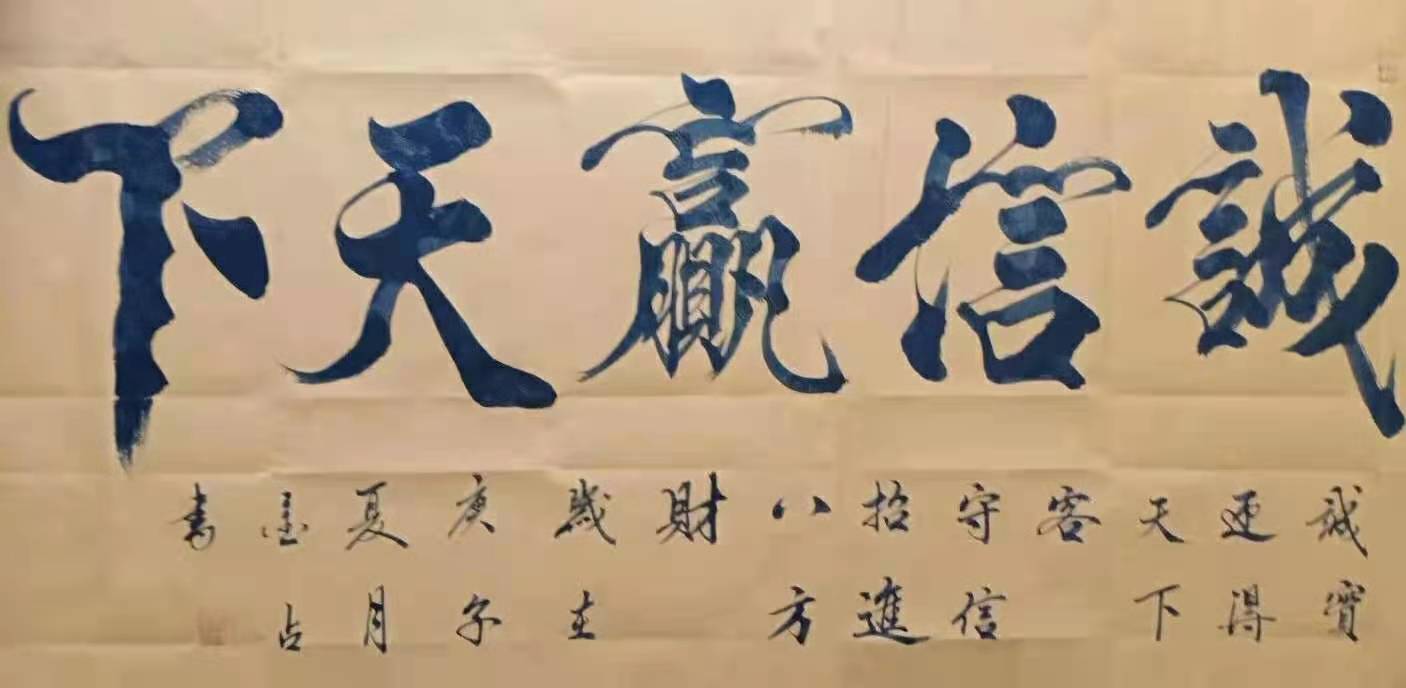 誠信贏天下
誠實
迎得
天下
客
守信
招進
八方
財
歲在
庚子
夏月
占
書